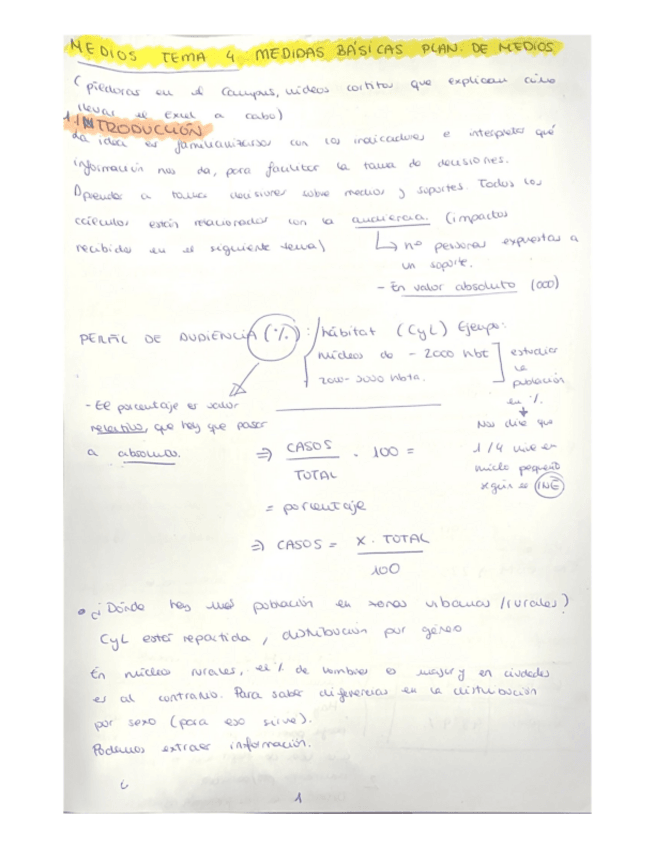 MEDIOS TEMA 4: MEDIDAS BÁSICAS PLAN. DE MEDIOS
(píldoras en el Campus, vídeos cortitos que explican cómo
llevar el Excel a cabo)
1. INTRODUCCIÓN
La idea es familiarizarse con los indicadores e interpretar qué
información nos da, para facilitar la toma de decisiones.
Aprender a tomar decisiones sobre medios y soportes. Todos los
cálculos están relacionados con la audiencia. (impactos
recibidos en el siguiente tema)
↳ nº personas expuestas a
un soporte.
- En valor absoluto (000)
PERFIL DE AUDIENCIA (%): hábitat (CyL) Ejempo:
núcleos de - 2000 hbt
2000-3000 hbts.
estudiar
la
población
en %.
Nos dice que
1/4 vive en
núcleo pequeño
según el INE
- El porcentaje es valor
relativo, que hay que pasar
a absoluto.
⇒ CASOS / TOTAL . 100 =
= porcentaje
⇒ CASOS = X . TOTAL / 100
• ¿Dónde hay más población en zonas urbanas/rurales?
CyL está repartida, distribución por género
En núcleos rurales, el % de hombres es mayor y en ciudades
es al contrario. Para saber diferencias en la distribución
por sexo (para eso sirve).
Podemos extraer información.
¿
1